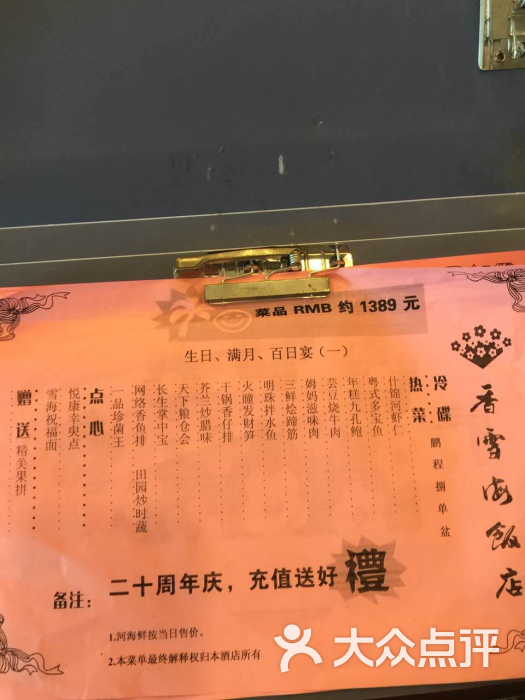 菜品 RMB 约 1389 元
生日、满月、百日宴（一）
香雪海飯店
冷碟
鹏程捌单盆
热菜
什锦河虾仁
粤式多宝鱼
年糕九孔鲍
芸豆烧牛肉
姆妈滋味肉
三鲜烩蹄筋
明珠拌水鱼
火瞳发财笋
干锅香仔排
芥兰炒腊味
天下粮仓会
长生掌中宝
网络香鱼排
田园炒时蔬
一品珍菌王
点心
悦康幸奭点
雪海祝福面
赠送
精美果拼
备注：
二十周年庆，充值送好禮
1.河海鲜按当日售价。
2.本菜单最终解释权归本酒店所有
大众点评